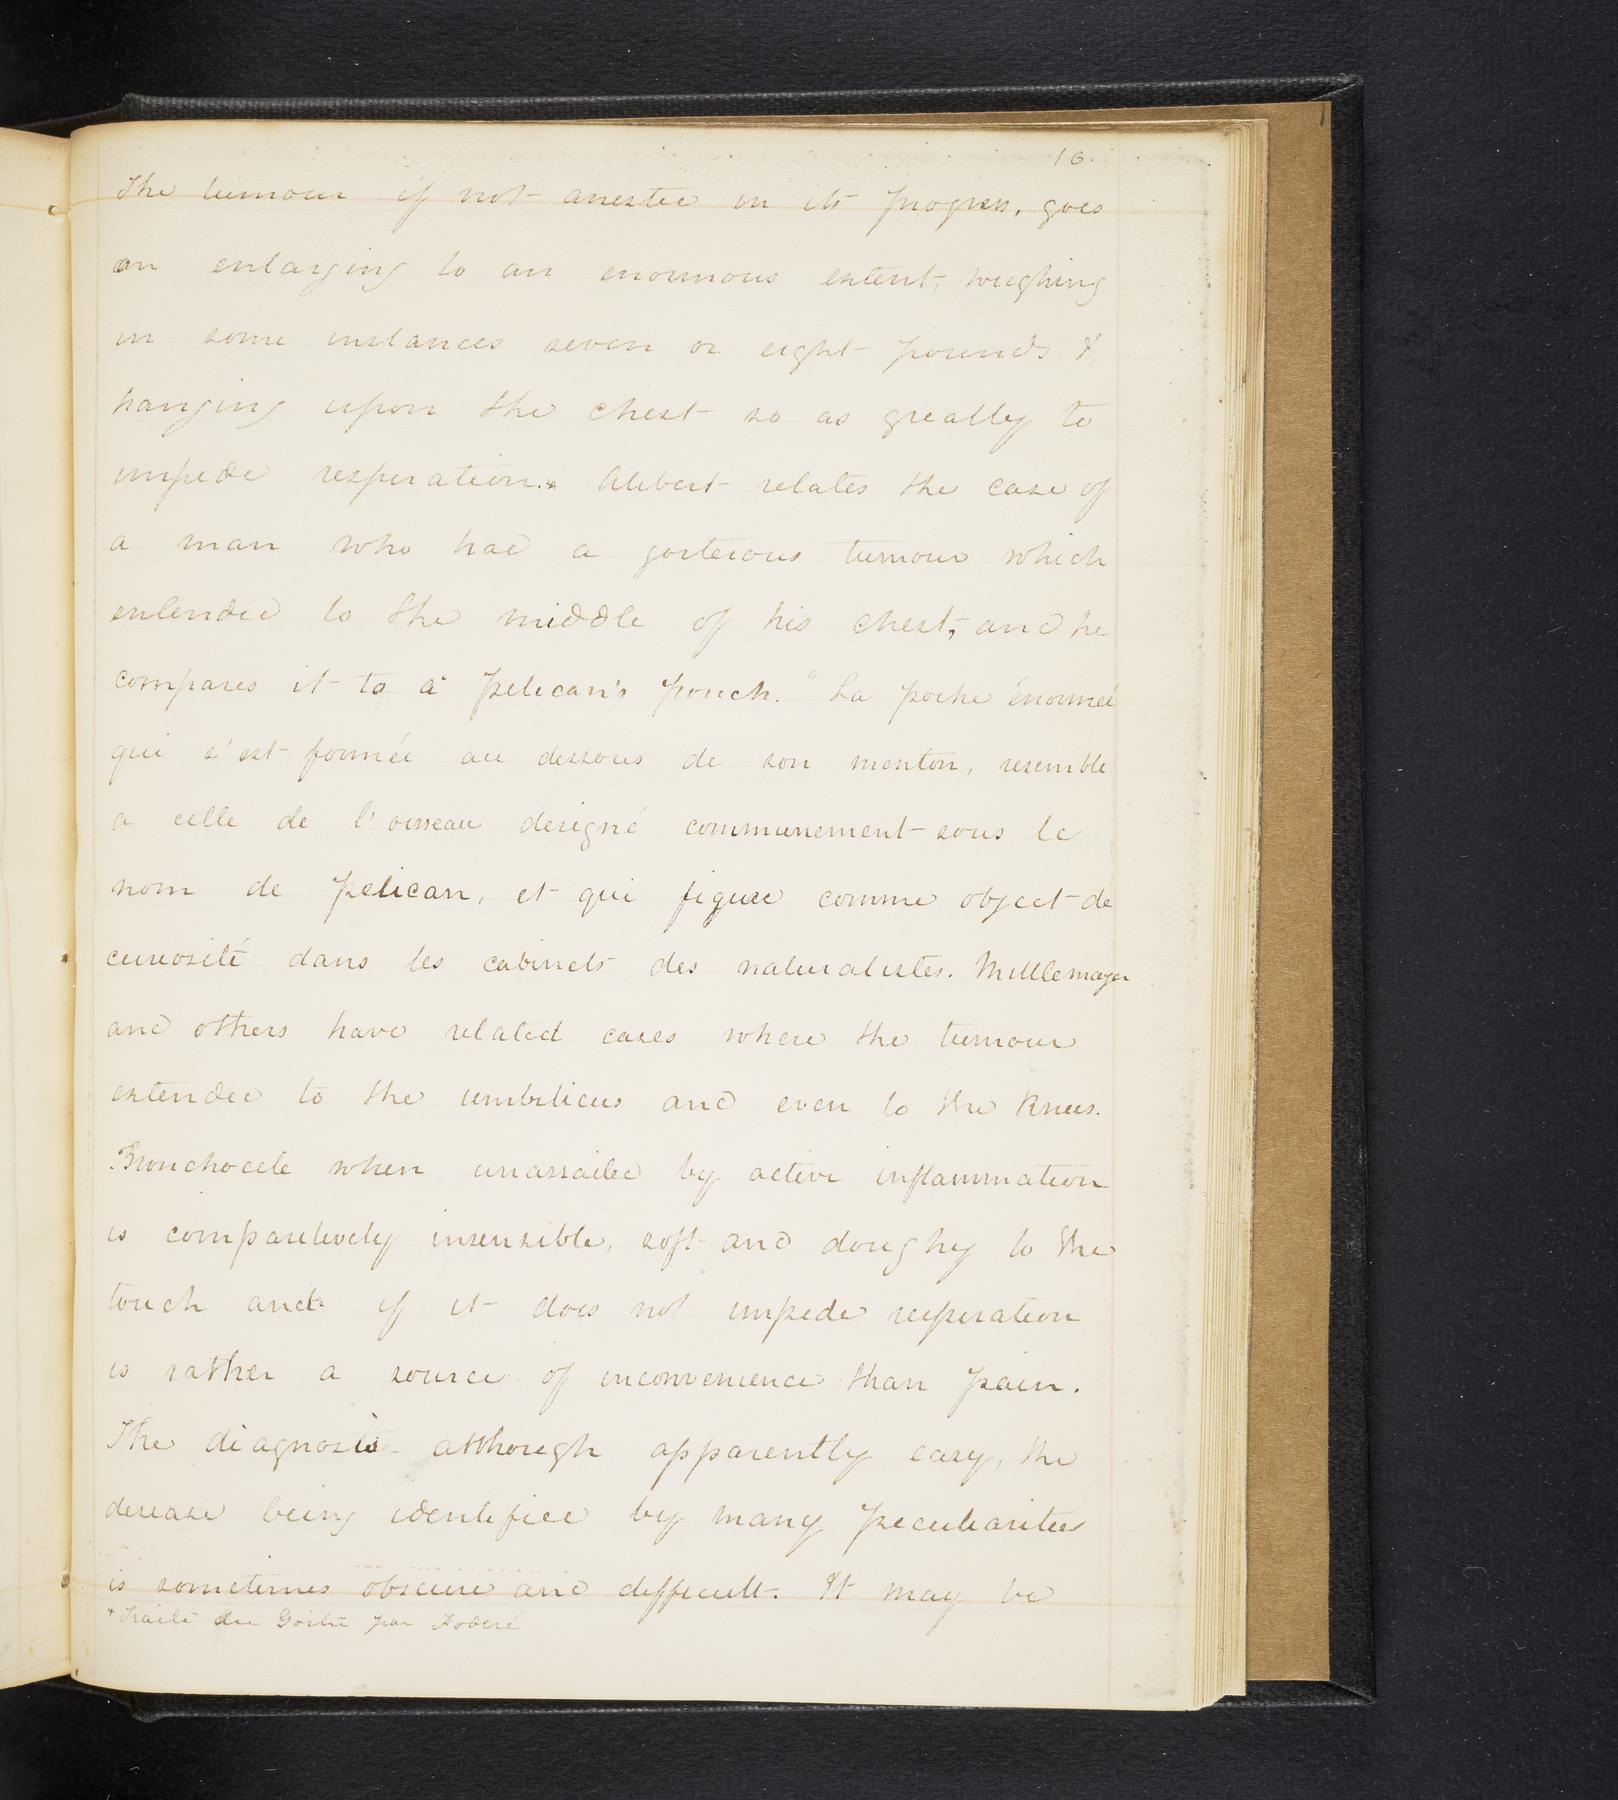 16.
The tumour if not arrested in its progress, goes
on enlarging to an enormous extent, weighing
in some instances seven or eight pounds &
hanging upon the chest so as greatly to
impede respiration.* Alibert relates the case of
a man who had a goiterous tumour which
extended to the middle of his chest, and he
compares it to a pelican's pouch. "La poche énormé
qui s'est formée au dessous de son menton, resemble
a celle de l'oiseau designé communement sous le
nom de pelican, et qui figure comme object de
curiosité dans les cabinets des naturalistes. Mittlemayer
and others have related cases where the tumour
extended to the umbilicus and even to the knees.
Bronchocele when unassailed by active inflammation
is comparitively insensible, soft and doughy to the
touch and if it does not impede respiration
is rather a source of inconvenience than pain.
The diagnosis although apparently easy, the
disease being identified by many peculiarities
is sometimes obscure and difficult. It may be
* Traité du Goitre par Foderé